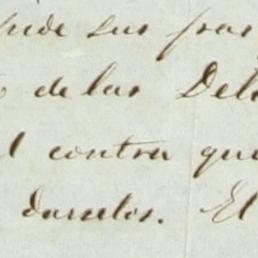 pide sus pa
de las Del
l contra que
darselos. El